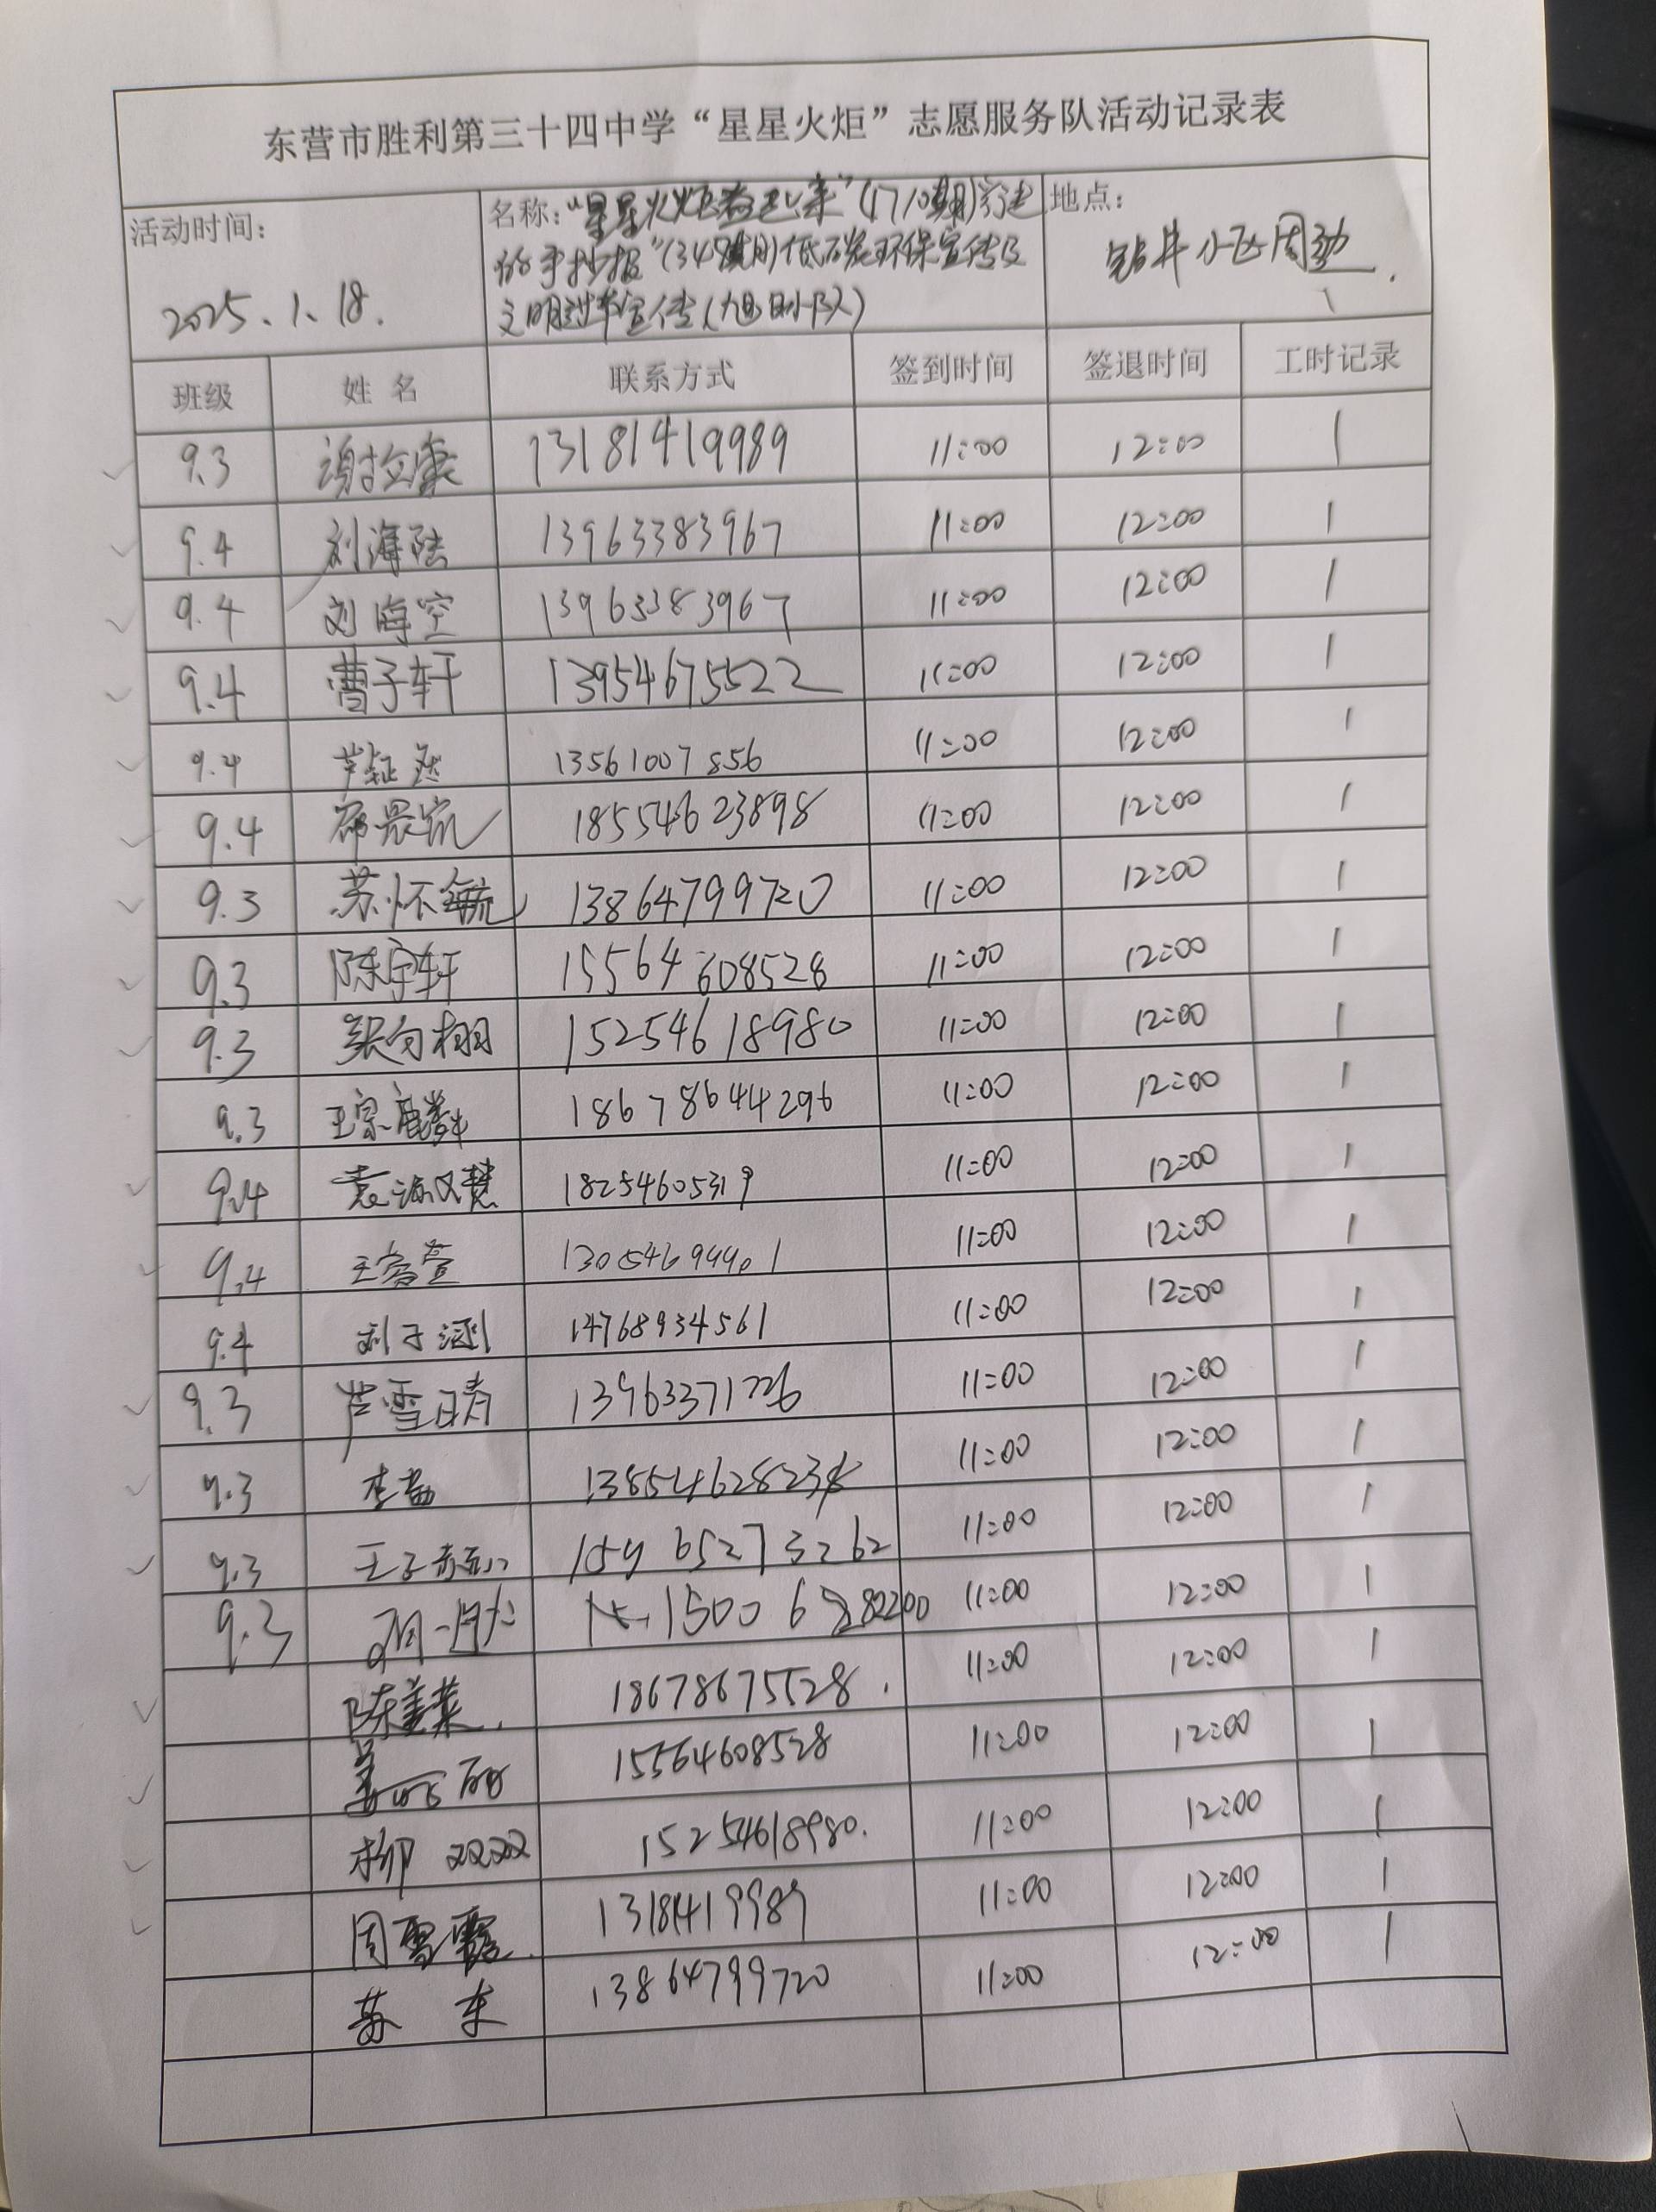 东营市胜利第三十四中学“星星火炬”志愿服务队活动记录表
活动时间:
2025.1.18.
名称:“星星火炬 来”(1710期)行走
的手抄报”(348期)低碳环保宣传及
文明过年宣传(旭日小队)
地点:
钻井小区周边.
班级 姓名 联系方式 签到时间 签退时间 工时记录
9.3 谢文康 13181419989 11:00 12:00 1
9.4 刘海陆 13963383967 11:00 12:00 1
9.4 刘海空 13963383967 11:00 12:00 1
9.4 曹子轩 13954675522 11:00 12:00 1
9.4 13561007856 11:00 12:00 1
9.4 18554623898 11:00 12:00 1
9.3 苏怀毓 13864799720 11:00 12:00 1
9.3 陈宇轩 15564608528 11:00 12:00 1
9.3 梁向栩 15254618980 11:00 12:00 1
9.3 王宗麟 18678644296 11:00 12:00 1
9.4 袁 慧 18254605319 11:00 12:00 1
9.4 王 萱 11:00 12:00 1
9.4 刘子渊 14768934561 11:00 12:00 1
9.3 芦雪晴 11:00 12:00 1
9.3 李 11:00 12:00 1
9.3 王子 15965273262 11:00 12:00 1
9.3 周一 11:00 12:00 1
陈美菜. 18678675528. 11:00 12:00 1
姜 丽 15564608528 11:00 12:00 1
柳双双 15254618980. 11:00 12:00 1
周雪霞. 13181419989 11:00 12:00 1
苏东 13864799720 11:00 12:00 1